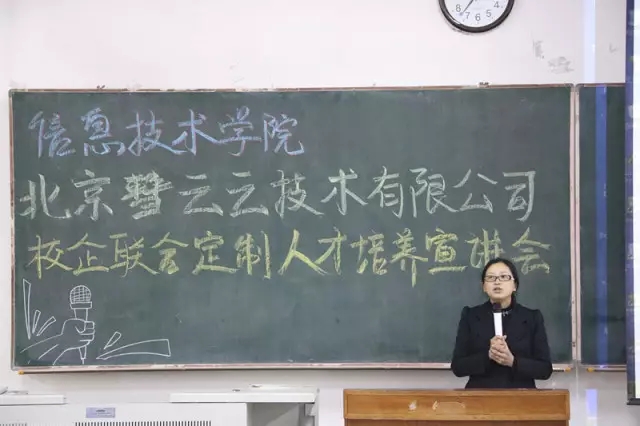 信息技术学院
北京云云技术有限公司
校企联合定制人才培养宣讲会